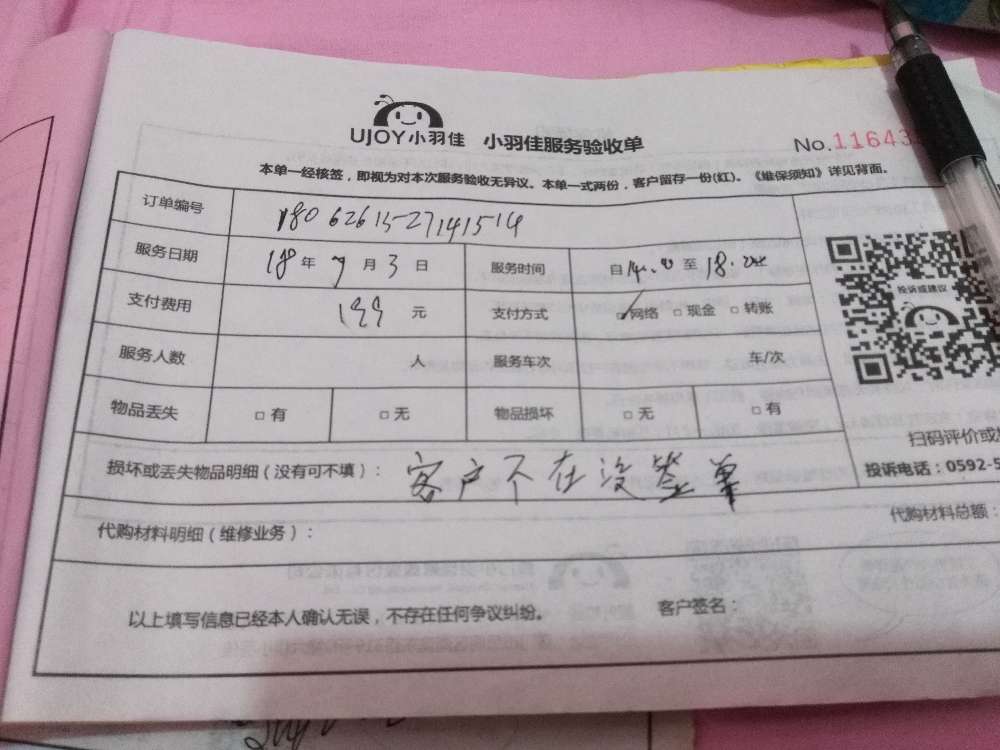 UJOY小羽佳 小羽佳服务验收单
No.11643
本单一经核签，即视为对本次服务验收无异议。本单一式两份，客户留存一份(红)。《维保须知》详见背面。
订单编号 1806261527141514
服务日期 18年7月3日 服务时间 自14.00至18.00
支付费用 199元 支付方式 ☑网络 □现金 □转账
服务人数 人 服务车次 车/次
投诉或建议
物品丢失 □有 □无 物品损坏 □无 □有
扫码评价或
投诉电话：0592-5
损坏或丢失物品明细（没有可不填）：客户不在没签单
代购材料明细（维修业务）：
代购材料总额：
以上填写信息已经本人确认无误，不存在任何争议纠纷。 客户签名：